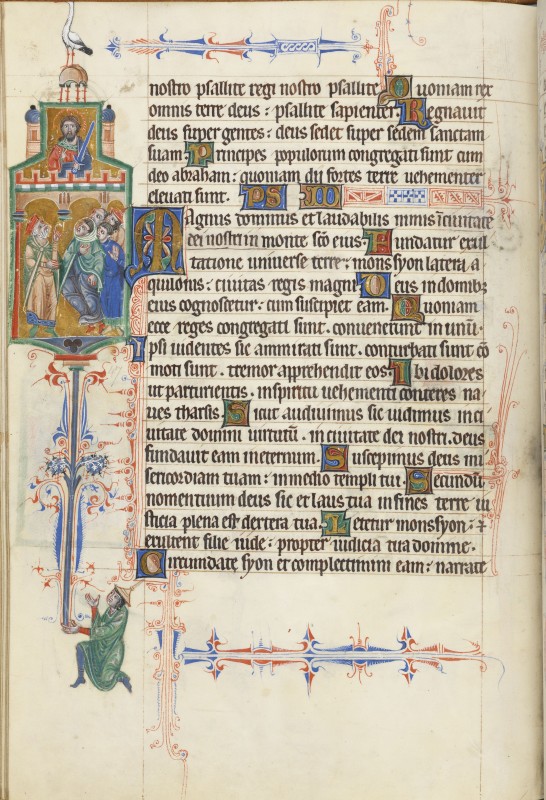 nostro psallite regi nostro psallite Quoniam rex
omnis terre deus : psallite sapienter Regnauit
deus super gentes : deus sedet super sedem sanctam
suam. Principes populorum congregati sunt cum
deo abraham : quoniam dii fortes terre uehementer
eleuati sunt. PS M
Magnus dominus et laudabilis nimis ĩ ciuitate
dei nostri in monte sc̃o eius. Fundatur exul
tatione uniuerse terre : mons syon latera a
quilonis : ciuitas regis magni Deus in domibꝫ
eius cognoscetur : cum suscipiet eam. Quoniam
ecce reges congregati sunt. conuenerunt in unũ.
Ipsi uidentes sic ammirati sunt. conturbati sunt cõ
moti sunt. tremor apprehendit eos Ibi dolores
ut parturientis. in spiritu uehementi conteres na
ues tharsis. Sicut audiuimus sic uidimus in ci
uitate domini uirtutũ. in ciuitate dei nostri. deus
fundauit eam in eternum. Suscepimus deus mi
sericordiam tuam : in medio templi tui. Secundũ
nomen tuum deus sic et laus tua in fines terre iu
sticia plena est dextera tua. Letetur mons syon : ⁊
exultent filie iude : propter iudicia tua domine.
Circundate syon et complectimini eam : narrate